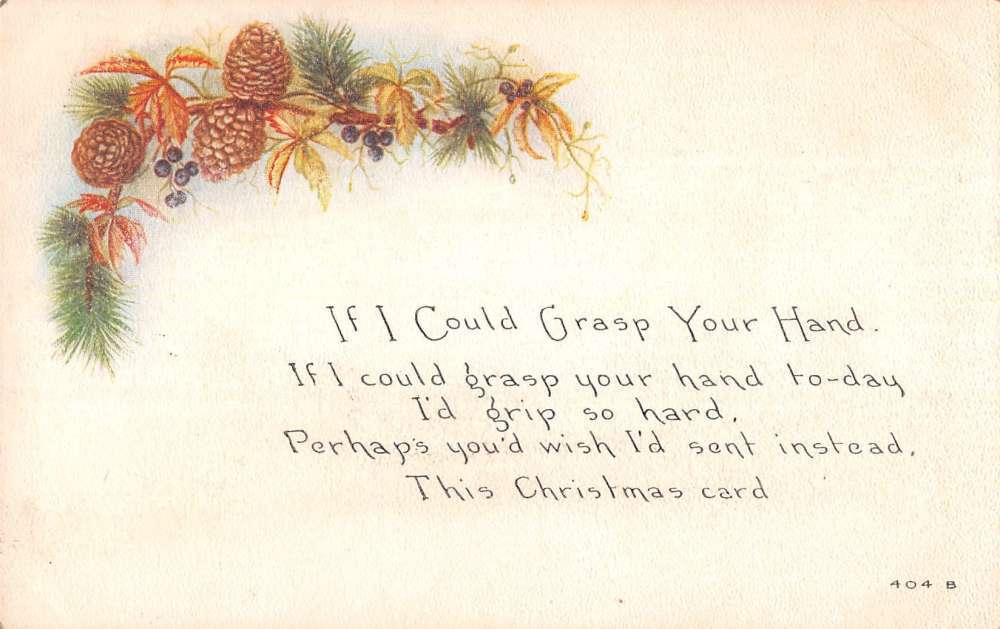 If I Could Grasp Your Hand.
If I could grasp your hand to-day
I'd grip so hard,
Perhap's you'd wish I'd sent instead,
This Christmas card
404 B